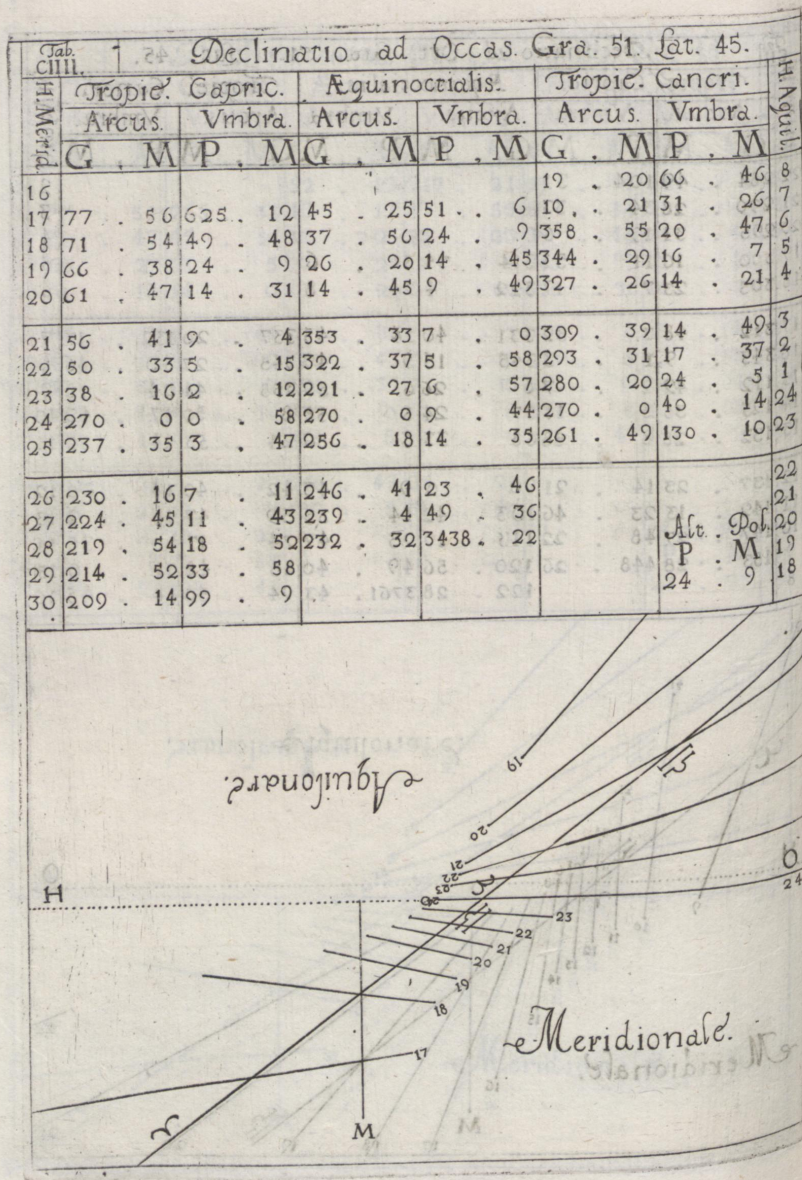 Tab. CIIII. Declinatio ad Occas. Gra. 51. Lat. 45.
H. Merid. Tropic. Capric. Æquinoctialis. Tropic. Cancri. H. Aquil.
Arcus. Vmbra. Arcus. Vmbra. Arcus. Vmbra.
G . M P . M G . M P . M G . M P . M
16 19 . 20 66 . 46 8
17 77 . 56 625 . 12 45 . 25 51 . 6 10 . 21 31 . 26 7
18 71 . 54 49 . 48 37 . 56 24 . 9 358 . 55 20 . 47 6
19 66 . 38 24 . 9 26 . 20 14 . 45 344 . 29 16 . 7 5
20 61 . 47 14 . 31 14 . 45 9 . 49 327 . 26 14 . 21 4
21 56 . 41 9 . 4 353 . 33 7 . 0 309 . 39 14 . 49 3
22 50 . 33 5 . 15 322 . 37 5 . 58 293 . 31 17 . 37 2
23 38 . 16 2 . 12 291 . 27 6 . 57 280 . 20 24 . 5 1
24 270 . 0 0 . 58 270 . 0 9 . 44 270 . 0 40 . 14 24
25 237 . 35 3 . 47 256 . 18 14 . 35 261 . 49 130 . 10 23
26 230 . 16 7 . 11 246 . 41 23 . 46 22
27 224 . 45 11 . 43 239 . 4 49 . 36 21
28 219 . 54 18 . 52 232 . 32 3438 . 22 Alt. Pol. 20
29 214 . 52 33 . 58 P . M 19
30 209 . 14 99 . 9 24 . 9 18
19
Aquilonare.
20
21
22
23
24
H
O
24
23
22
21
20
19
18
17
Meridionale.
M